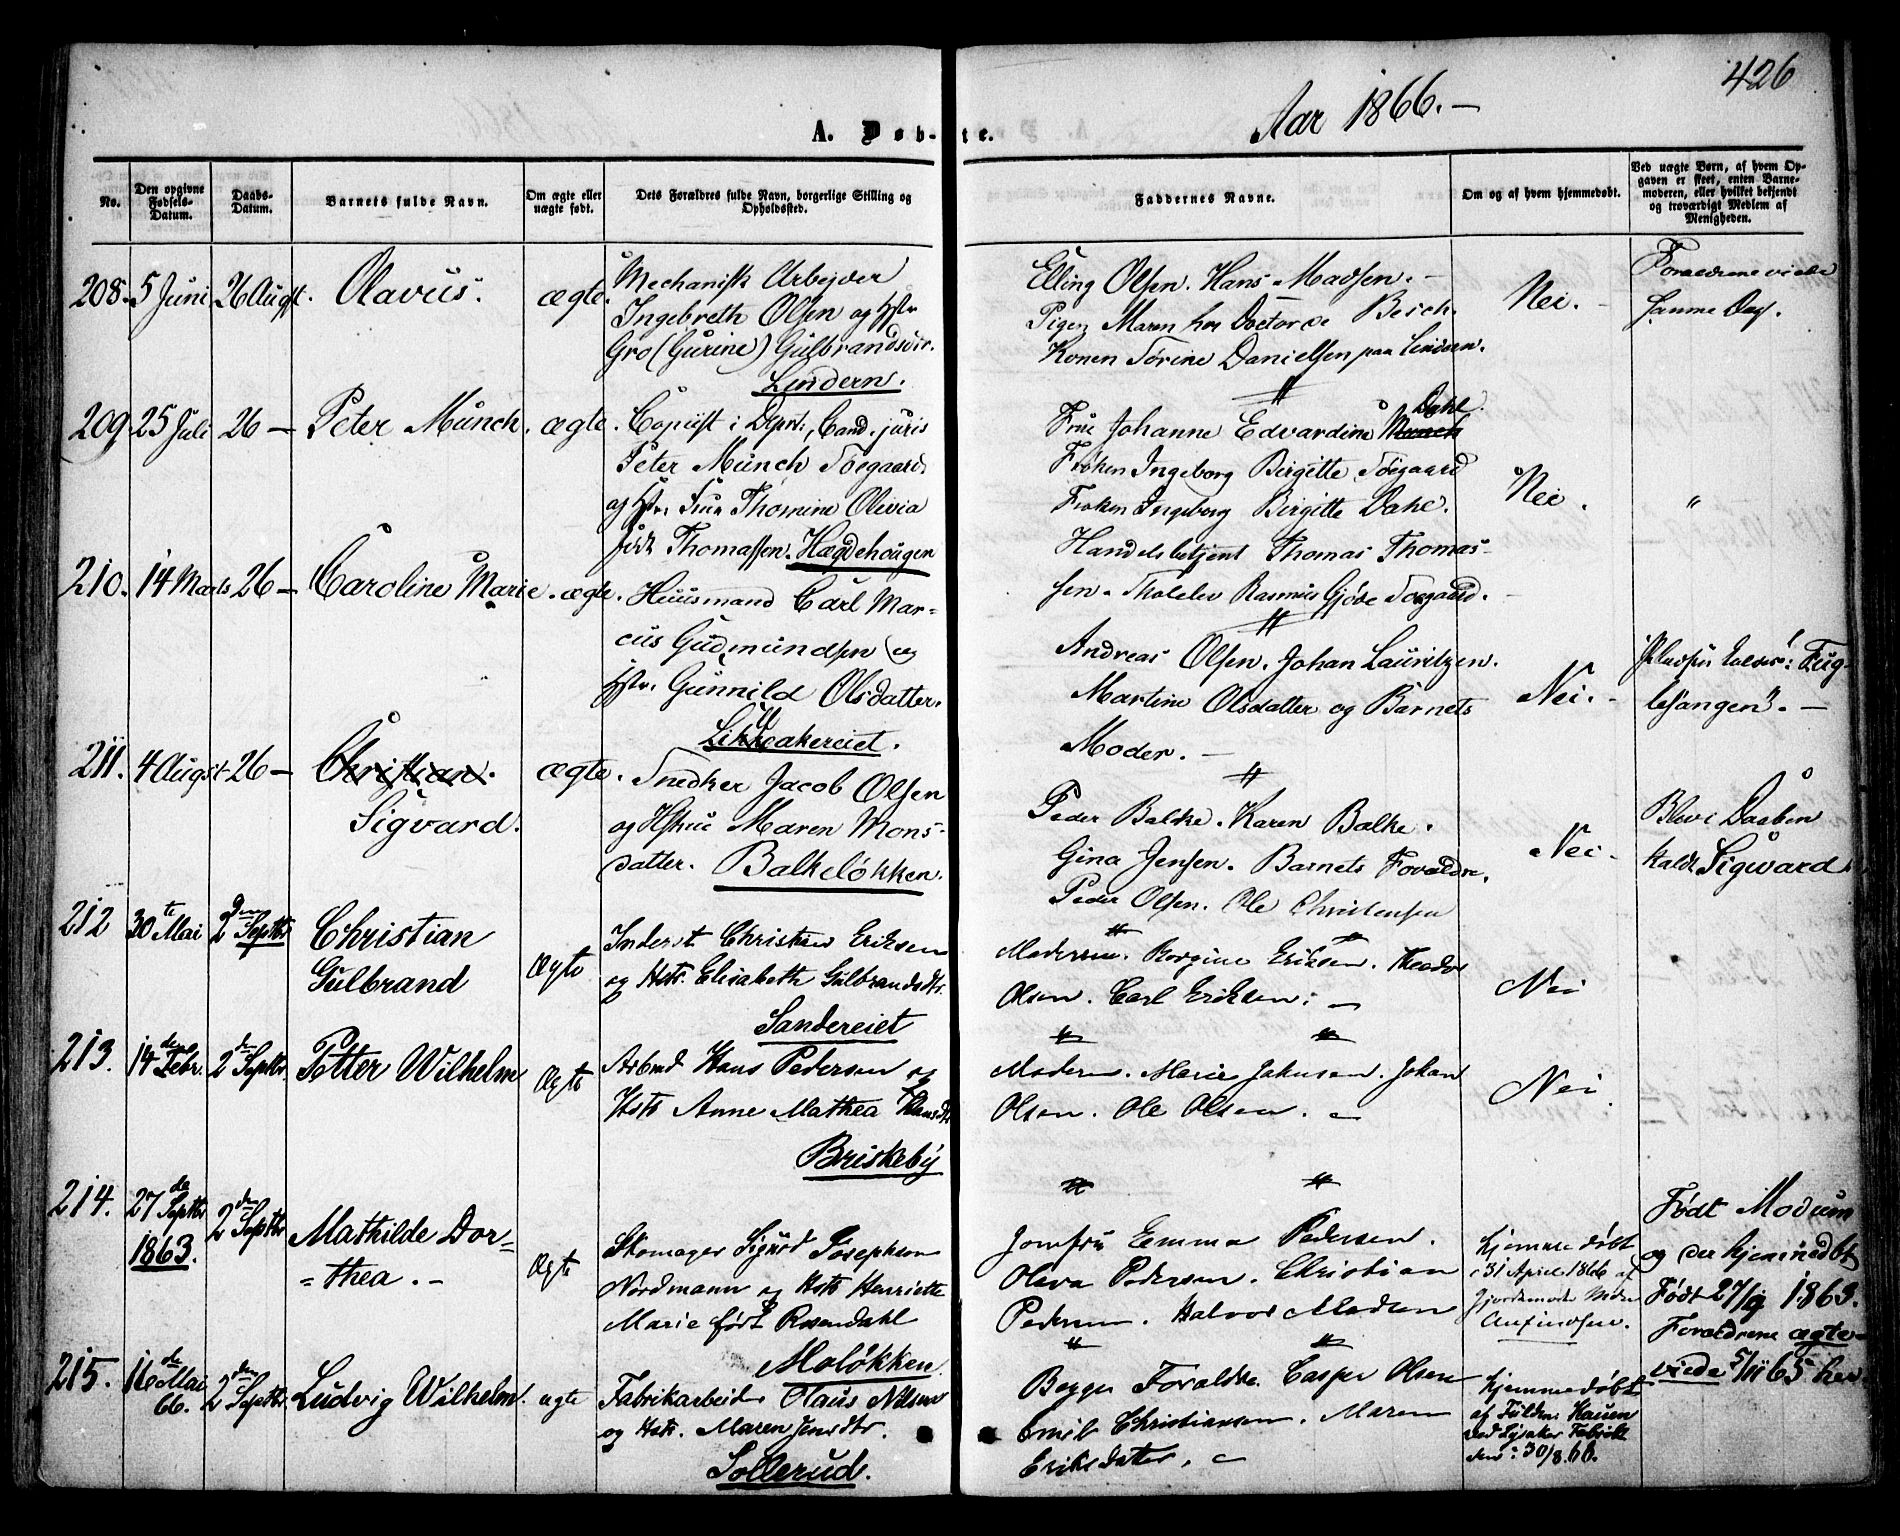 426
Aar 1866.—
A. Døb- te.
No.
Den opgivne Fødsels-Datum.
Daabs-Datum.
Barnets fulde Navn.
Om ægte eller uægte født.
Dets Forældres fulde Navn, borgerlige Stilling og Opholdssted.
Faddernes Navne.
Om og af hvem hjemmedøbt.
Ved uægte Børn, af hvem Opgaven er skeet, enten Barnemoderen, eller hvilket bekjendt og troværdigt Medlem af Menigheden.
208. 5 Juni 26 Augst. Olavus. ægte.
Mechanisk Arbejder
Ingebreth Olsen og Hstr
Gro (Gurine) Gulbrandsdtr.
Lindern.
Elling Olsen. Hans Madsen.—
Pigen Maren hos Doctor Besch.
Konen Torine Danielsen paa Lindern.
Nei.—
Forældrene viede
samme Dag.
209. 25 Juli 26 — Peter Munch. ægte.
Copiist i Dept:, Cand. juris
Peter Munch Søegaard
og Hstr. Frue Thomine Olivia
født Thomassen. Hægdehougen
Frue Johanne Edvardine Munch Dahl.
Frøken Ingeborg Birgitte Søegaard
Frøken Ingeborg Birgitte Dahl.
Handelsbetjent Thomas Thomas-
sen. Rasmus Gjøde Søegaard.—
Nei.
"
210. 14 Marts 26 — Caroline Marie. ægte.
Huusmand Carl Mar-
cus Gudmundsen og
Hstr. Gunnild Olsdatter.
Lilleakereiet.
Andreas Olsen. Johan Lauritzen.
Martine Olsdatter og Barnets
Moder.—
Nei.—
Fug-
lesangen".—
211. 4 Augst 26 — Christian.
Sigvard. ægte.
Snedker Jacob Olsen
og Hustrue Maren Mons-
datter. Balkeløkken.
Peder Balke. Karen Balke.
Gina Jensen. Barnets Forældre.
Peder Olsen. Ole Christensen
Nei.
Blev i Daaben
kaldt Sigvard.
212 30te Mai 2den Septbr Christian
Gulbrand Ægte
Inderst Christian Eriksen
og Hstr. Elisabeth Gulbrandsdtr.
Sandereiet
Moderen. Borgine Eriksen. Theodor
Olsen. Carl Eriksen.—
Nei
213. 14de Febr. 2den Septbr. Petter Wilhelm Ægte
Arbmd Hans Pedersen og
Hstr Anne Mathea Hansdtr
Briskeby
Moderen. Marie Johnsen. Johan
Olsen. Ole Olsen.—
Nei.
214. 27de Septbr
1863. 2den Septbr Mathilde Dor=
=thea.— Ægte
Skomager Sigurd Josephson
Nordmann og Hstr Henriette
Marie født Rosendahl
Moløkken
Jomfru Emma Pedersen.
Olava Pedersen. Christian
Pedersen. Halvor Madsen
Hjemmedøbt
31 April 1866 af
Gjordemoder
Født Modum
og der hjemmedbt
Født 27/9 1863.
Forældrene ægte-
viede 5/11 65 her.
215. 16de Mai
66. 2den Septbr. Ludvig Wilhelm. ægte
Fabrikarbeider Claus Nilsen
og Hstr. Maren Jensdtr.
Sollerud.
Begge Forældre. Casper Olsen
Emil Christiansen. Maren
Eriksdatter.—
Hjemmedøbt
af Hansen
ved Lysaker Fabrik
den: 30/8.66.